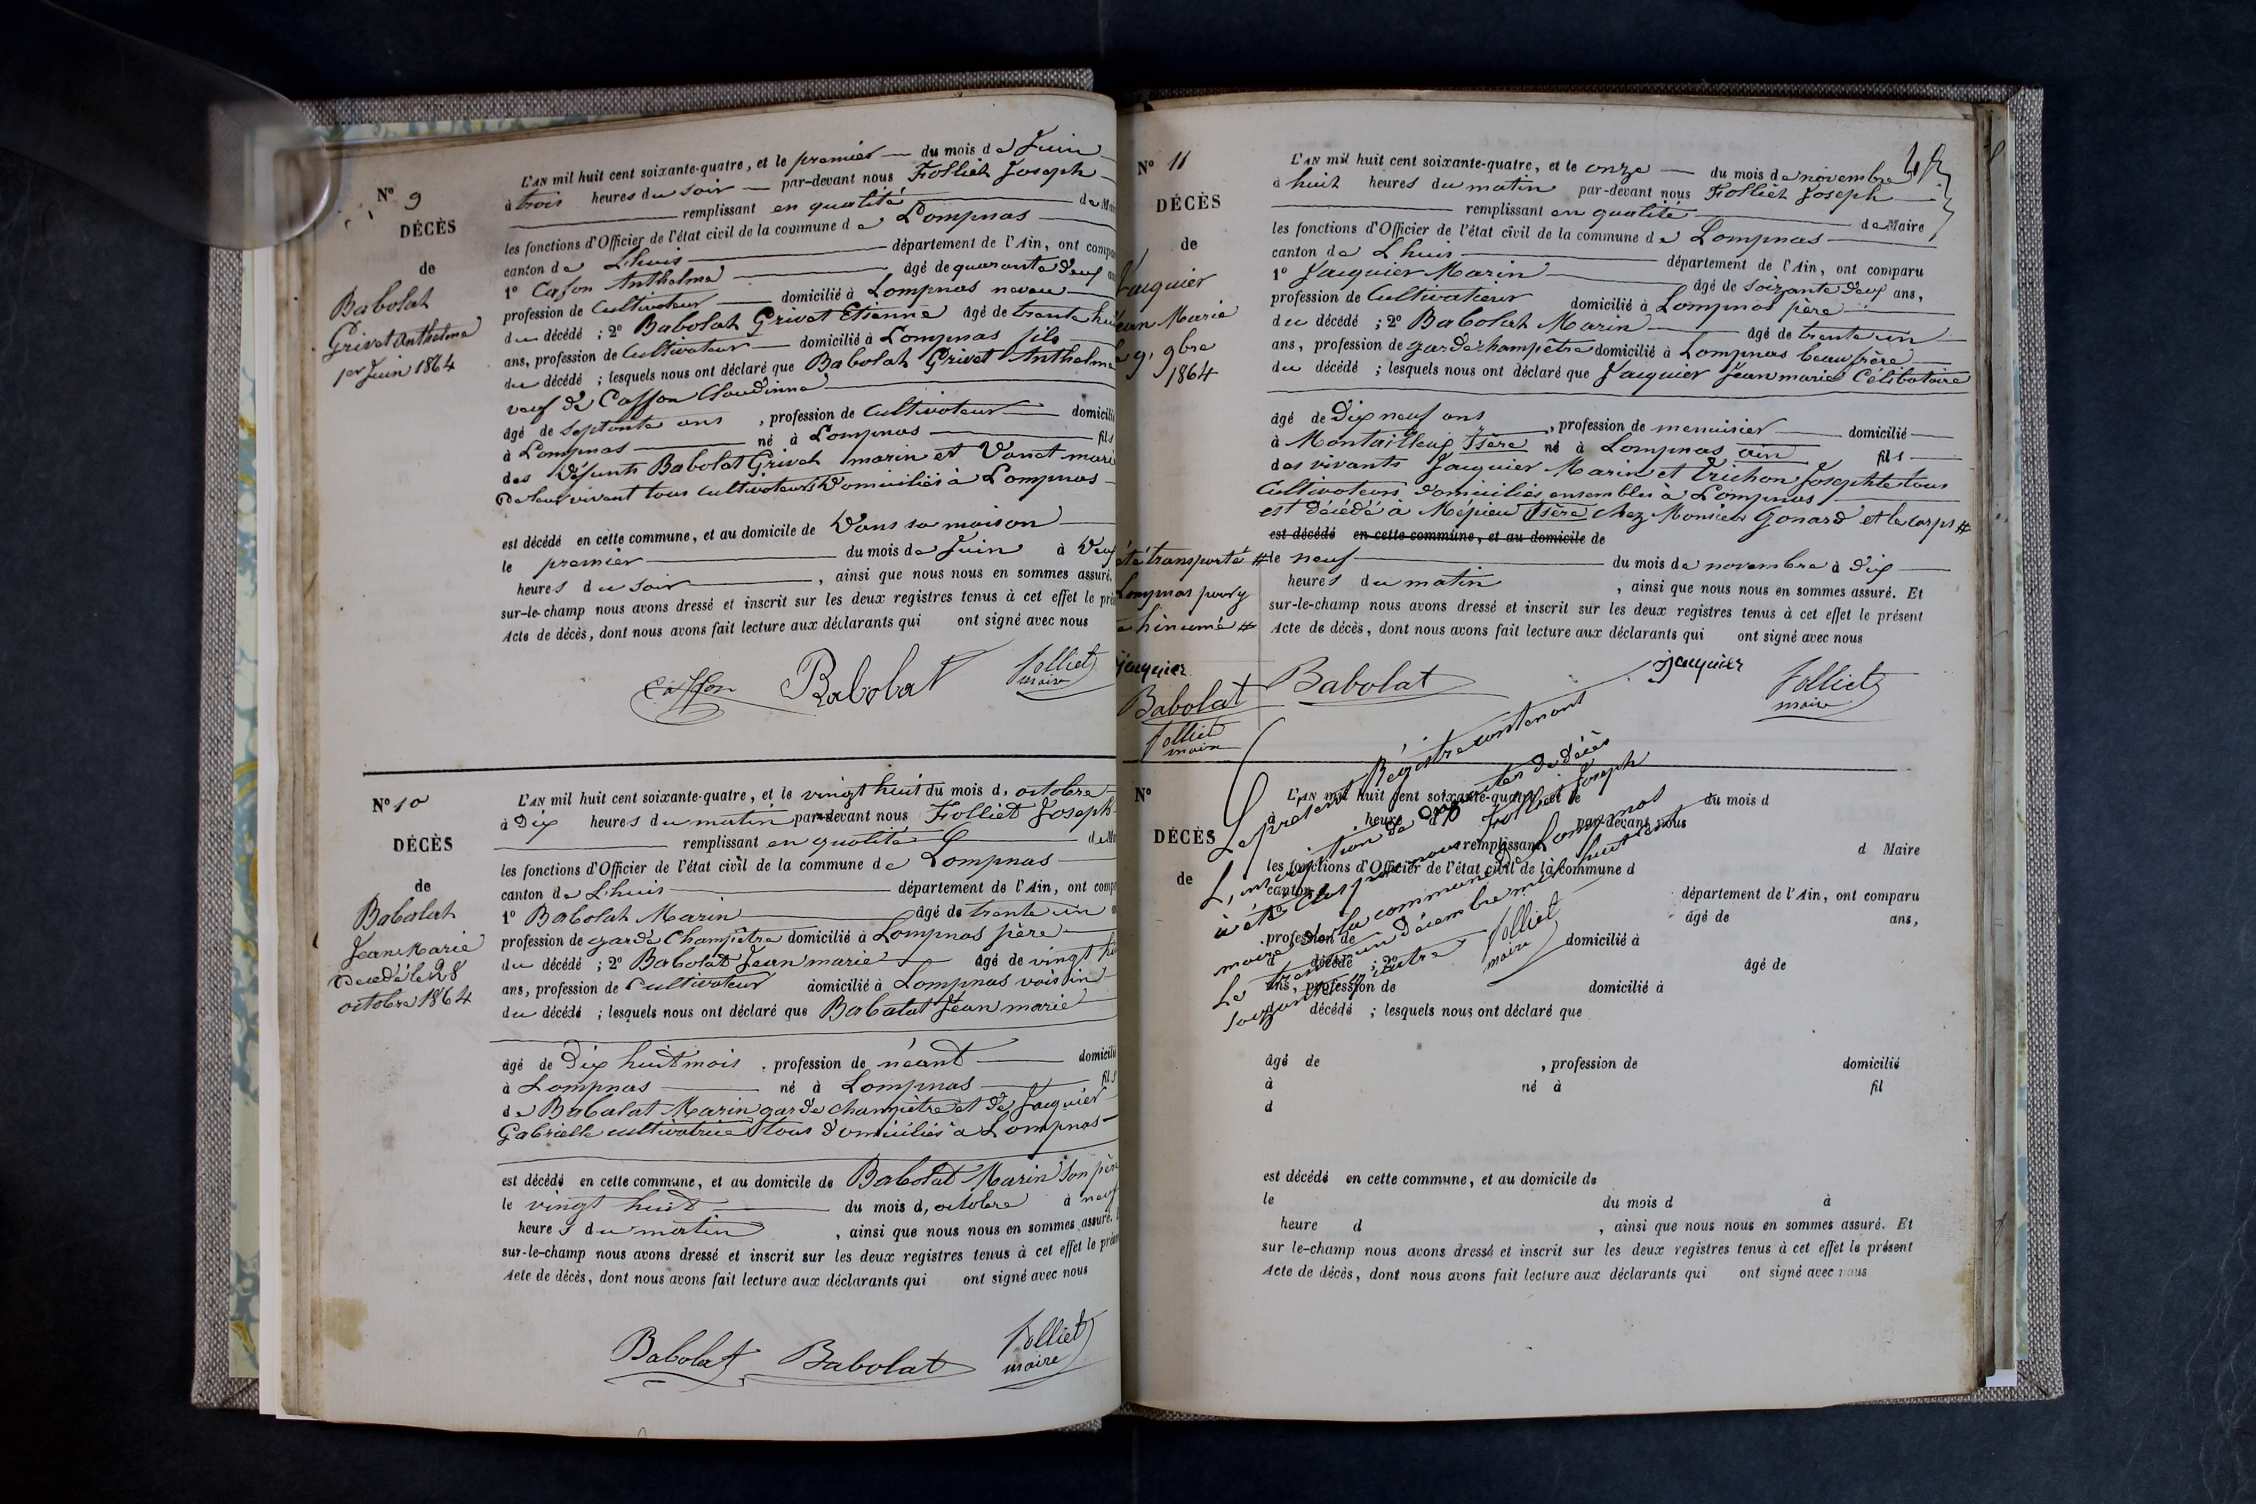 N° 9
DÉCÈS
de
Babolat
Grivet Anthelme
1er Juin 1864
L'AN mil huit cent soixante-quatre, et le premier du mois de Juin
à trois heures du soir par-devant nous Folliet Joseph
remplissant en qualité de
les fonctions d'Officier de l'état civil de la commune de Lompnas
canton de Lhuis département de l'Ain, ont
1° Caffon Anthelme âgé de quarante deux
profession de Cultivateur domicilié à Lompnas neveu
du décédé ; 2° Babolat Grivet Etienne âgé de trente
ans, profession de Cultivateur domicilié à Lompnas fils
du décédé ; lesquels nous ont déclaré que Babolat Grivet Anthelme
veuf de Caffon Claudinne
âgé de septante ans , profession de Cultivateur
à Lompnas né à Lompnas fils
des Défunts Babolat Grivet marin et
De leur vivant tous cultivateurs Domiciliés à Lompnas
est décédé en cette commune, et au domicile de Dans sa maison
le premier du mois de Juin à
heures du soir , ainsi que nous nous en sommes assuré.
sur-le-champ nous avons dressé et inscrit sur les deux registres tenus à cet effet le
Acte de décès, dont nous avons fait lecture aux déclarants qui ont signé avec nous
Caffon Babolat Folliet
maire
N° 10
DÉCÈS
de
Babolat
Jean Marie
Decédé le 28
octobre 1864
L'AN mil huit cent soixante-quatre, et le vingt huit du mois d, octobre
à Dix heures du matin par-devant nous Folliet Joseph
remplissant en qualité
les fonctions d'Officier de l'état civil de la commune de Lompnas
canton de Lhuis département de l'Ain, ont
1° Babolat Marin âgé de trente un
profession de garde Champêtre domicilié à Lompnas père
du décédé ; 2° Babolat Jean marie âgé de vingt
ans, profession de Cultivateur domicilié à Lompnas voisin
du décédé ; lesquels nous ont déclaré que Babolat Jean marie
âgé de Dix huit mois , profession de néant
à Lompnas né à Lompnas fils
de Babolat Marin garde champêtre et de Jacquier
Gabrielle cultivatrice tous domiciliés à Lompnas
est décédé en cette commune, et au domicile de Babolat Marin son père
le vingt huit du mois d, octobre à neuf
heures du matin , ainsi que nous nous en sommes assuré.
sur-le-champ nous avons dressé et inscrit sur les deux registres tenus à cet effet le
Acte de décès, dont nous avons fait lecture aux déclarants qui ont signé avec nous
Babolat Babolat Folliet
maire
N° 11
DÉCÈS
de
Jacquier
Jean Marie
9bre
1864
L'AN mil huit cent soixante-quatre, et le onze du mois de novembre
à huit heures du matin par-devant nous Folliet Joseph
remplissant en qualité de Maire
les fonctions d'Officier de l'état civil de la commune de Lompnas
canton de Lhuis département de l'Ain, ont comparu
1° Jacquier Marin âgé de soixante deux ans,
profession de Cultivateur domicilié à Lompnas père
du décédé ; 2° Babolat Marin âgé de trente un
ans, profession de garde champêtre domicilié à Lompnas beau frère
du décédé ; lesquels nous ont déclaré que Jacquier Jean marie Célibataire
âgé de Dix neuf ans , profession de menuisier domicilié
à Montailleux Isère né à Lompnas ain fils
des vivants Jacquier Marin et Trichon Josephte tous
Cultivateurs domiciliés ensembles à Lompnas
est décédé à Mépieu Isère chez Monsieur Gonard et le corps #
est décédé en cette commune, et au domicile de
été transporté #
Lompnas pour y
inumé #
le neuf du mois de novembre à dix
heures du matin , ainsi que nous nous en sommes assuré. Et
sur-le-champ nous avons dressé et inscrit sur les deux registres tenus à cet effet le présent
Acte de décès, dont nous avons fait lecture aux déclarants qui ont signé avec nous
jacquier
Babolat
Folliet
maire
Babolat jacquier Folliet
maire
Le présent Régistre contenant
L, inscription de actes de décès
à été Clos par nous Folliet Joseph
maire de la commune de Lompnas
Le trente un Décembre mil huit cent
soixante quatre Folliet
maire
N°
DÉCÈS
de
L'AN mil huit cent soixante-quatre, et le du mois d
à heure d par-devant nous
remplissant d Maire
les fonctions d'Officier de l'état civil de la commune d
canton département de l'Ain, ont comparu
1° âgé de ans,
profession de domicilié à
d décédé ; 2° âgé de
ans, profession de domicilié à
d décédé ; lesquels nous ont déclaré que
âgé de , profession de domicilié
à né à fil
d
est décédé en cette commune, et au domicile de
le du mois d à
heure d , ainsi que nous nous en sommes assuré. Et
sur le-champ nous avons dressé et inscrit sur les deux registres tenus à cet effet le présent
Acte de décès, dont nous avons fait lecture aux déclarants qui ont signé avec nous